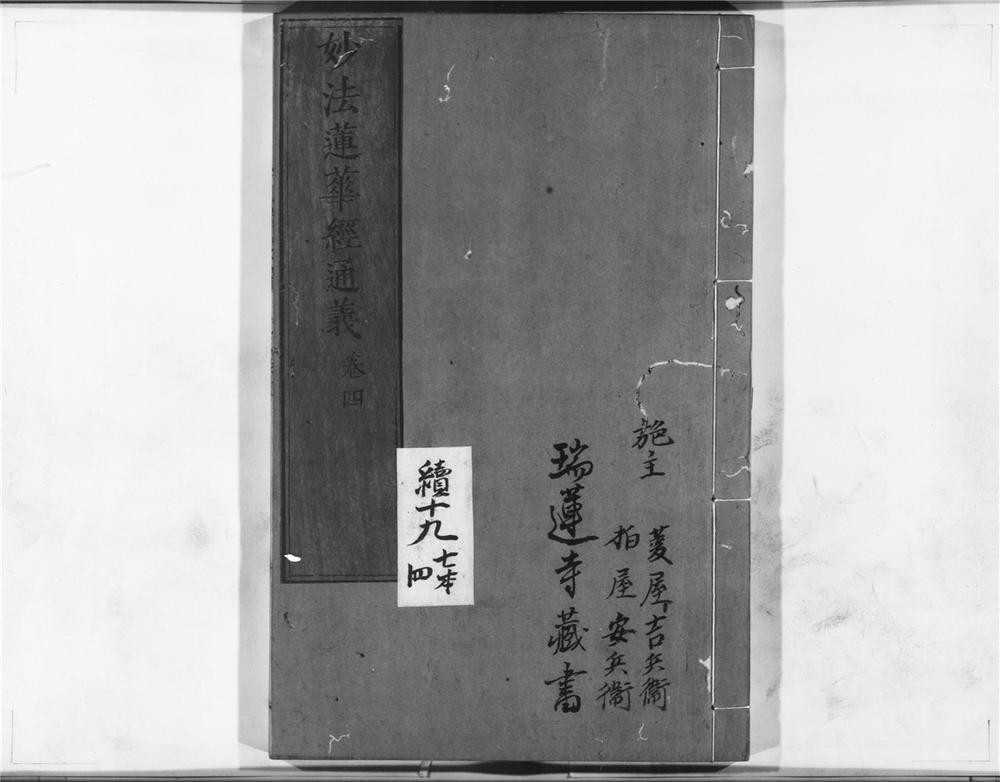 施主
菱屋吉兵衛
柏屋安兵衛
瑞蓮寺藏書
續十九
七本
四
妙法蓮華經通義 卷四